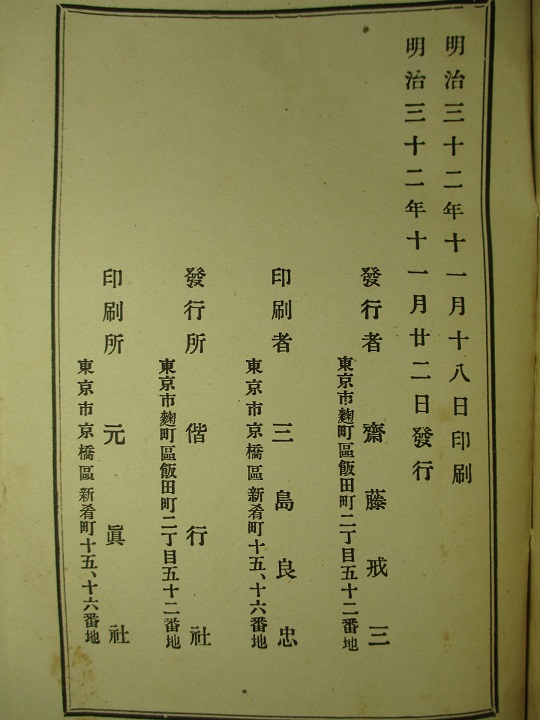 明治三十二年十一月十八日印刷
明治三十二年十一月廿二日發行
發行者 齋藤戒三
東京市麴町區飯田町二丁目五十二番地
印刷者 三島良忠
東京市京橋區新肴町十五、十六番地
發行所 偕行社
東京市麴町區飯田町二丁目五十二番地
印刷所 元眞社
東京市京橋區新肴町十五、十六番地